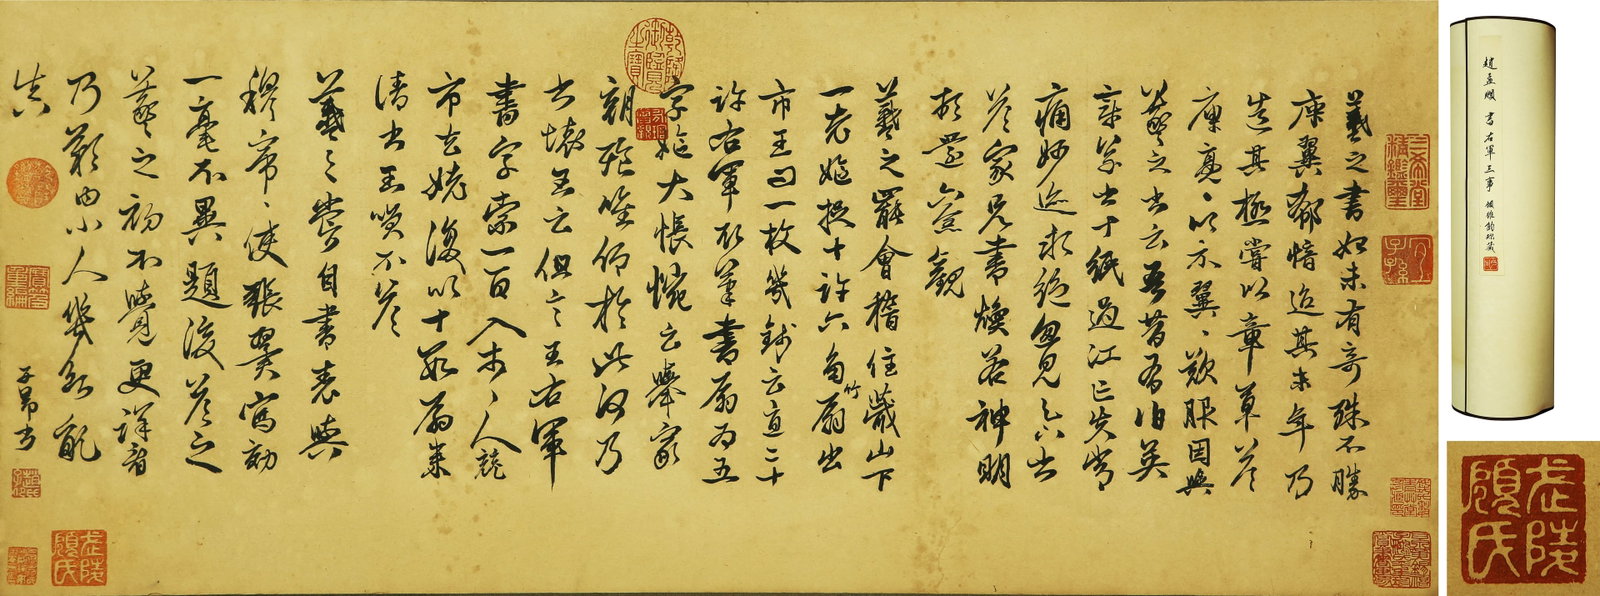 羲之書初未有奇殊不勝
庾翼郗愔迨其末年乃
造其極嘗以章草答
庾亮亮以示翼翼歎服因與
羲之書云吾昔有伯英
章草書十紙過江亡失常
痛妙迹永絕忽見足下書
答家兄書煥若神明
頓還舊觀
羲之罷會稽住蕺山下
一老嫗捉十許六角竹扇出
市王曰一枚幾錢云直二十
許右軍取筆書扇為五
字嫗大悵惋云舉家
朝飱唯仰於此何乃
書壞王云但言王右軍
書字索一百入市市人競
市去姥復以十數扇來
請書王笑不答
羲之嘗自書表與
穆帝帝使張翼寫效
一毫不異題後答之
羲之初不覺更詳看
乃歎曰小人幾欲亂
真
子昂書
乾隆御覽之寶
三希堂精鑑璽
宜子孫
寶笈重編
趙氏子昂
武陵顧氏
趙孟頫 書右軍三事 珍藏
武陵顧氏